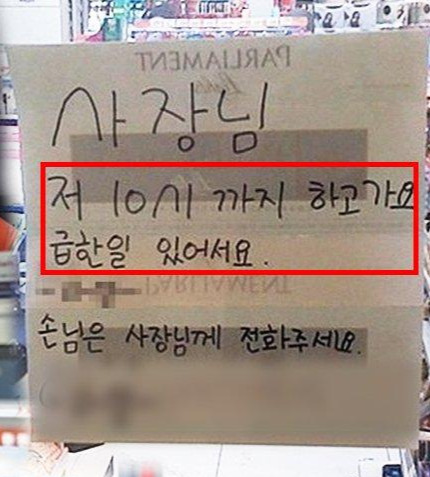 PARLIAMENT
사장님
저 10시 까지 하고가요
급한일 있어서요.
PARLIAMENT
손님은 사장님께 전화주세요.